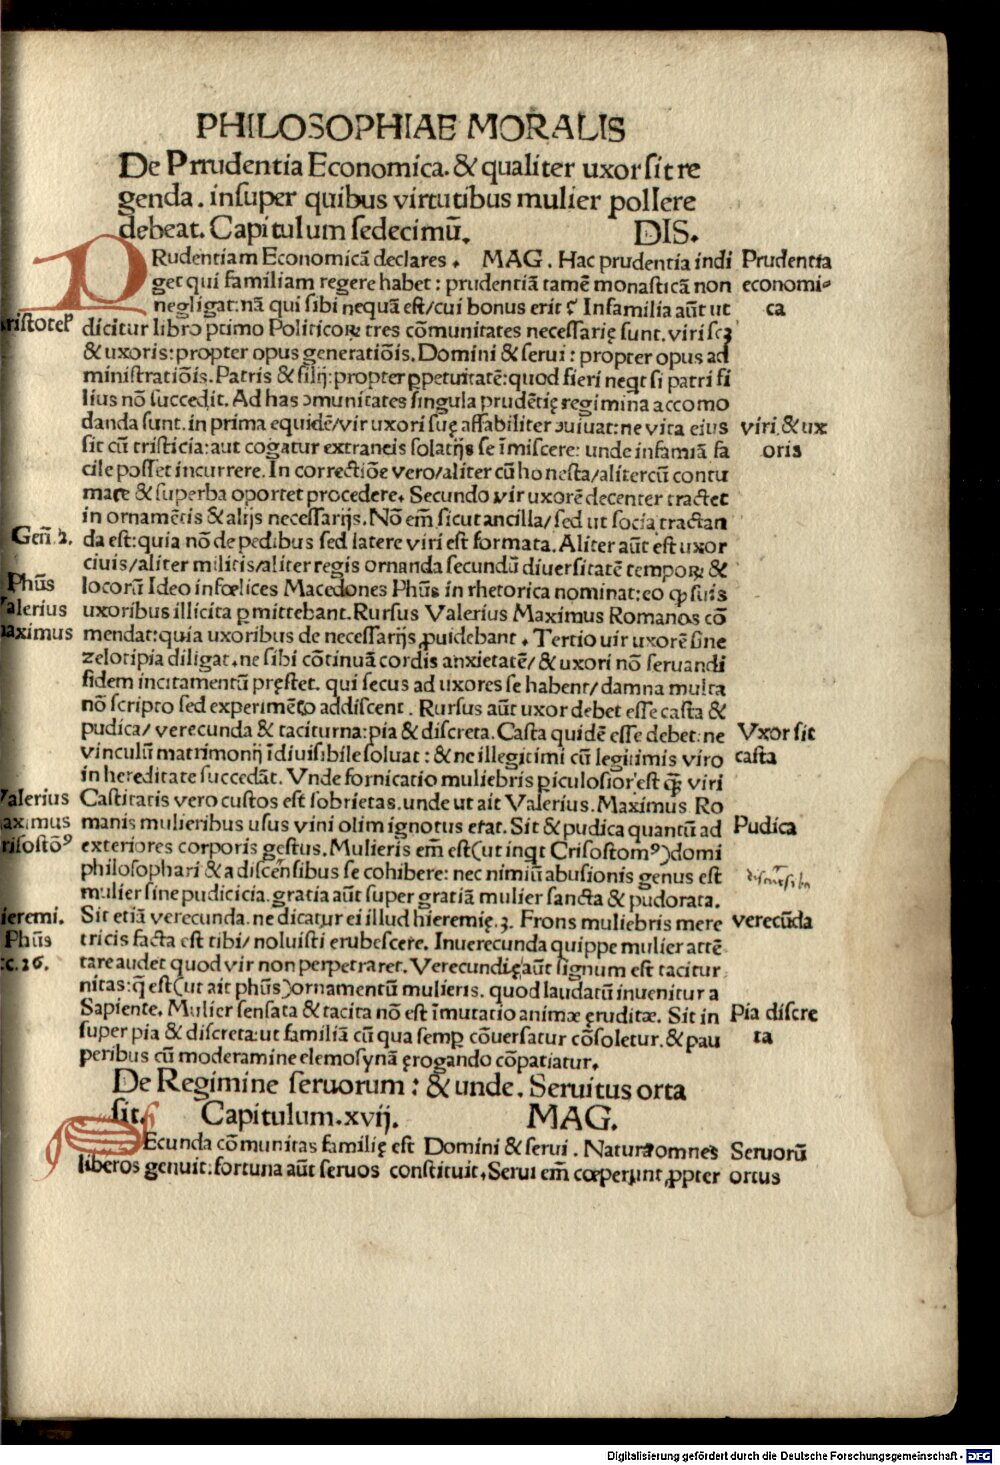 PHILOSOPHIAE MORALIS
De Prrudentia Economica. & qualiter uxor sit re
genda. insuper quibus virtutibus mulier pollere
debeat. Capitulum sedecimū. DIS.
PRudentiam Economicā declares. MAG. Hac prudentia indi
get qui familiam regere habet: prudentiā tamē monasticā non
negligat: nā qui sibi nequā est/cui bonus erit? Infamilia aūt ut
dicitur libro primo Politicoꝝ tres cōmunitates necessarię sunt. viri scꝫ
& uxoris: propter opus generatiōis. Domini & serui: propter opus ad
ministratiōis. Patris & filij: propter ꝑpetuitatē: quod fieri neqt si patri fi
lius nō succedit. Ad has ɔmunitates singula prudētię regimina accomo
danda sunt. in prima equidē/vir uxori suę affabiliter ɔuiuat: ne vita eius
sit cū tristicia: aut cogatur extraneis solatijs se īmiscere: unde infamiā fa
cile posset incurrere. In correctiōe vero/aliter cū honesta/aliter cū contu
mace & superba oportet procedere. Secundo vir uxorē decenter tractet
in ornamētis & alijs necessarijs. Nō em̄ sicut ancilla/sed ut socia tractan
da est: quia nō de pedibus sed latere viri est formata. Aliter aūt est uxor
ciuis/aliter militis/aliter regis ornanda secundū diuersitatē tempoꝝ &
locorū Ideo infœlices Macedones Phūs in rhetorica nominat: eo ꝙ suis
uxoribus illicita ꝑmittebant. Rursus Valerius Maximus Romanos cō
mendat: quia uxoribus de necessarijs ꝓuidebant. Tertio uir uxorē sine
zelotipia diligat. ne sibi cōtinuā cordis anxietatē/& uxori nō seruandi
fidem incitamentū pręstet. qui secus ad uxores se habent/damna multa
nō scripto sed experimēto addiscent. Rursus aūt uxor debet esse casta &
pudica/verecunda & taciturna: pia & discreta. Casta quidē esse debet: ne
vinculū matrimonij īdiuisibile soluat: & ne illegitimi cū legitimis viro
in hereditate succedāt. Vnde fornicatio muliebris ꝑiculosior est ꝙ̄ viri
Castitatis vero custos est sobrietas. unde ut ait Valerius. Maximus Ro
manis mulieribus usus vini olim ignotus erat. Sit & pudica quantū ad
exteriores corporis gestus. Mulieris em̄ est (ut inqt Crisostomꝰ) domi
philosophari & a discēsibus se cohibere: nec nimiū abusionis genus est
mulier sine pudicicia. gratia aūt super gratiā mulier sancta & pudorata.
Sit etiā verecunda. ne dicatur ei illud hieremię.3. Frons muliebris mere
tricis facta est tibi/noluisti erubescere. Inuerecunda quippe mulier attē
tare audet quod vir non perpetraret. Verecundię aūt signum est tacitur
nitas: q̄ est (ut ait phūs) ornamentū mulieris. quod laudatū inuenitur a
Sapiente. Mulier sensata & tacita nō est īmutatio animæ ęruditæ. Sit in
super pia & discreta: ut familiā cū qua semꝑ cōuersatur cōsoletur. & pau
peribus cū moderamine elemosynā ęrogando cōpatiatur.
De Regimine seruorum: & unde. Seruitus orta
sit. Capitulum. xvij. MAG.
SEcunda cōmunitas familię est Domini & serui. Natura omnes
liberos genuit: fortuna aūt seruos constituit. Serui em̄ cœperunt ꝓpter
Prudentia
economi-
ca
viri. & ux
oris
Vxor sit
casta
Pudica
verecūda
Pia discre
ta
Seruorū
ortus
ristotel'
Geñ. 2.
Phūs
alerius
aximus
Valerius
aximus
risostōꝰ
ieremi.
Phūs
c. 26.
Digitalisierung gefördert durch die Deutsche Forschungsgemeinschaft - DFG